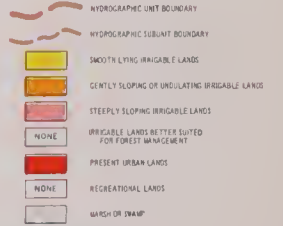 HYDROGRAPHIC UNIT BOUNDARY
HYDROGRAPHIC SUBUNIT BOUNDARY
SMOOTH LYING IRRIGABLE LANDS
GENTLY SLOPING OR UNDULATING IRRIGABLE LANDS
STEEPLY SLOPING IRRIGABLE LANDS
NONE IRRIGABLE LANDS BETTER SUITED
FOR FOREST MANAGEMENT
PRESENT URBAN LANDS
NONE RECREATIONAL LANDS
MARSH OR SWAMP